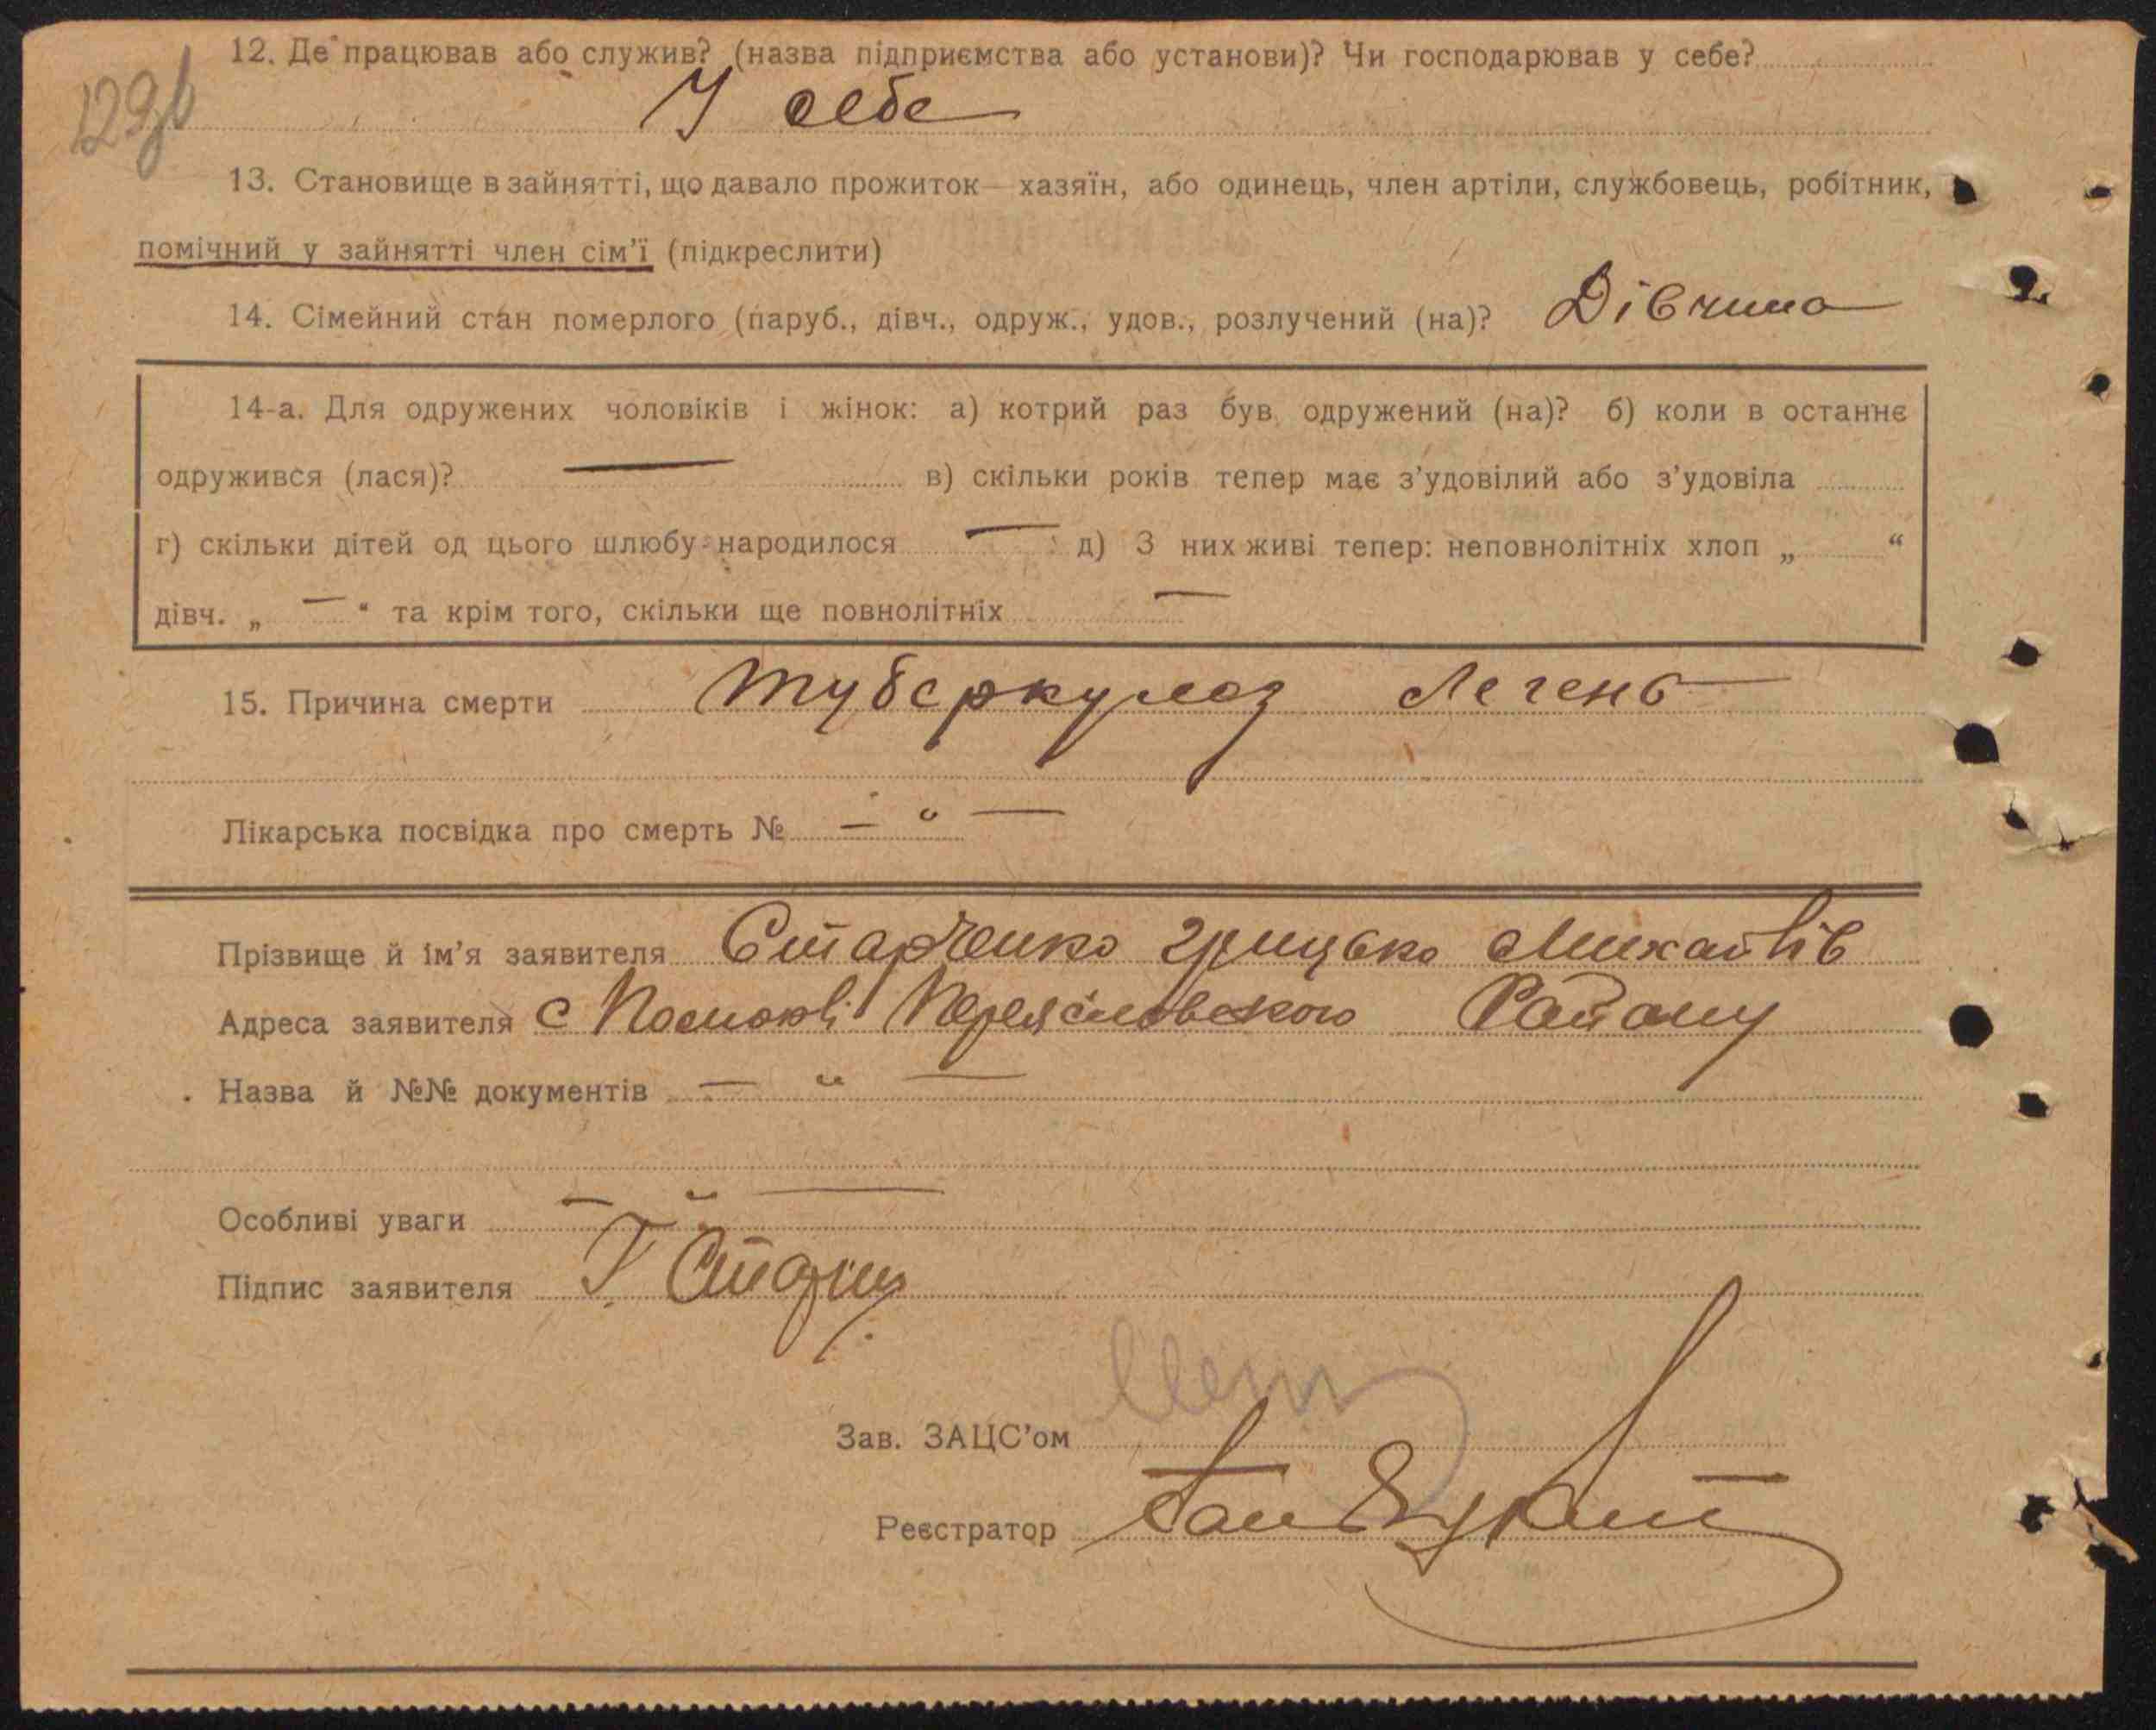 129зв
12. Де працював або служив? (назва підприємства або установи)? Чи господарював у себе?
У себе
13. Становище в зайнятті, що давало прожиток — хазяїн, або одинець, член артіли, службовець, робітник,
помічний у зайнятті член сім'ї (підкреслити)
14. Сімейний стан померлого (паруб., дівч., одруж., удов., розлучений (на)? Дівчина
14-а. Для одружених чоловіків і жінок: а) котрий раз був одружений (на)? б) коли в останнє
одружився (лася)? — в) скільки років тепер має з'удовілий або з'удовіла
г) скільки дітей од цього шлюбу народилося — д) З них живі тепер: неповнолітніх хлоп „ “
дівч. „ — “ та крім того, скільки ще повнолітніх —
15. Причина смерти Туберкульоз Легень
Лікарська посвідка про смерть № — " —
Прізвище й ім'я заявителя Старченко Грицько Михайлів
Адреса заявителя с Переяславського Району
Назва й №№ документів — " —
Особливі уваги — " —
Підпис заявителя Г Старч
Зав. ЗАЦС'ом
Реєстратор